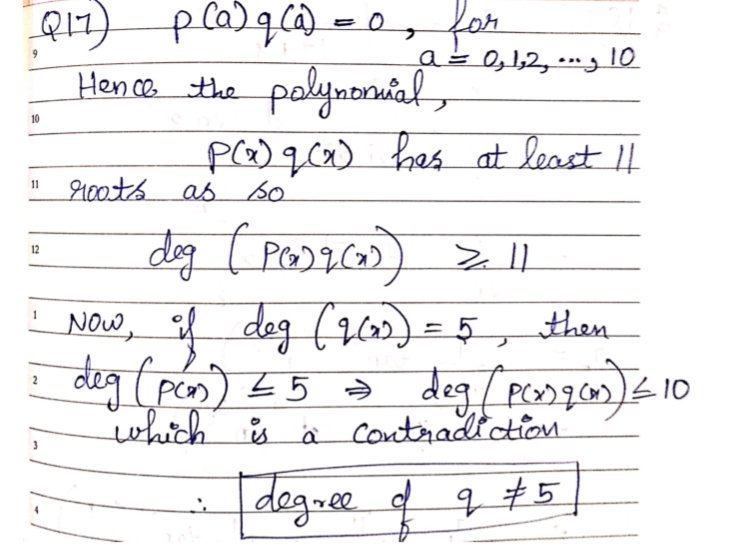 Q17) p(a) q(a) = 0 , for
9 a = 0,1,2, ..., 10
Hence the polynomial,
10
p(x) q(x) has at least 11
11 roots as so
12 deg ( P(x) q(x) ) ≥ 11
1 NOW, if deg ( q(x) ) = 5 , then
2 deg ( p(x) ) ≤ 5 ⇒ deg ( p(x) q(x) ) ≤ 10
which is a contradiction
3
4 ∴ degree of q ≠ 5